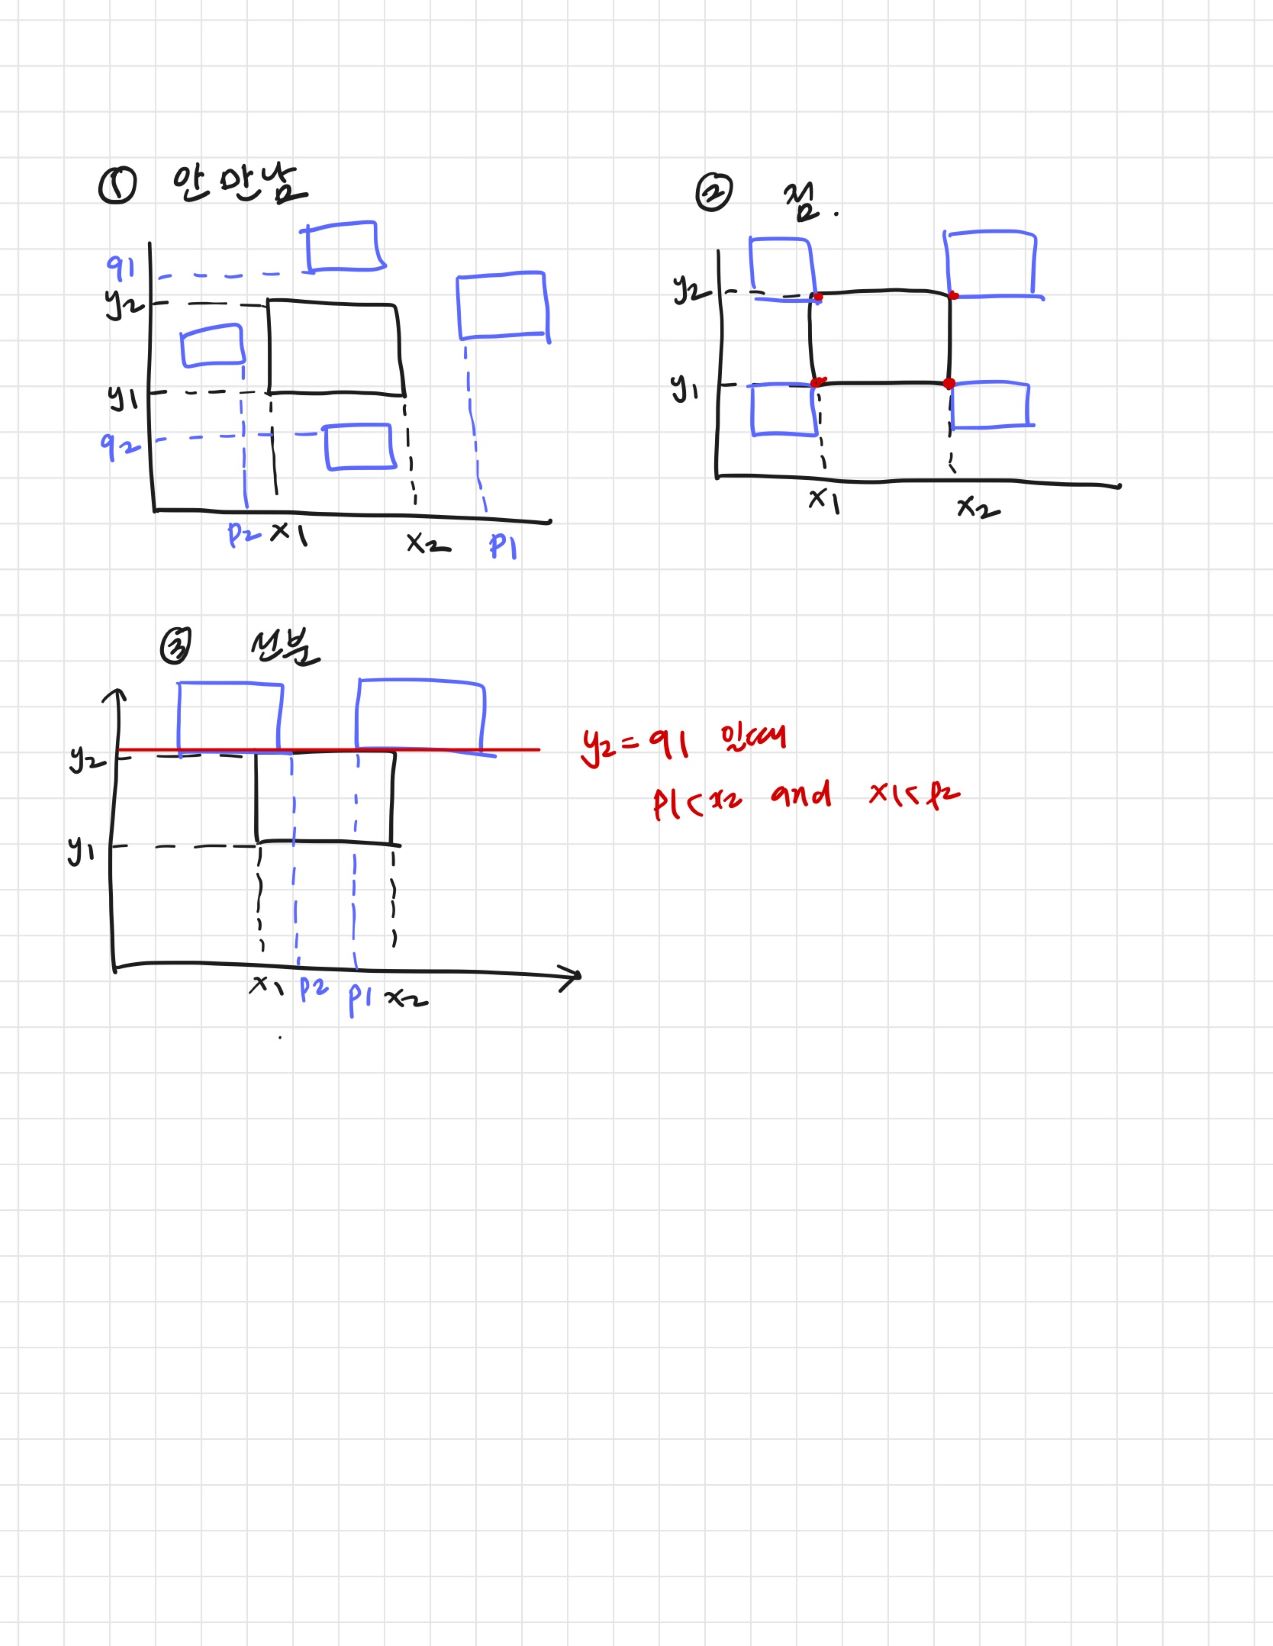 ① 안 만남
q1
y2
y1
q2
p2 x1 x2 p1
② 점.
y2
y1
x1 x2
③ 선분
y2
y1
x1 p2 p1 x2
y2 = q1 일때
p1 < x2 and x1 < p2